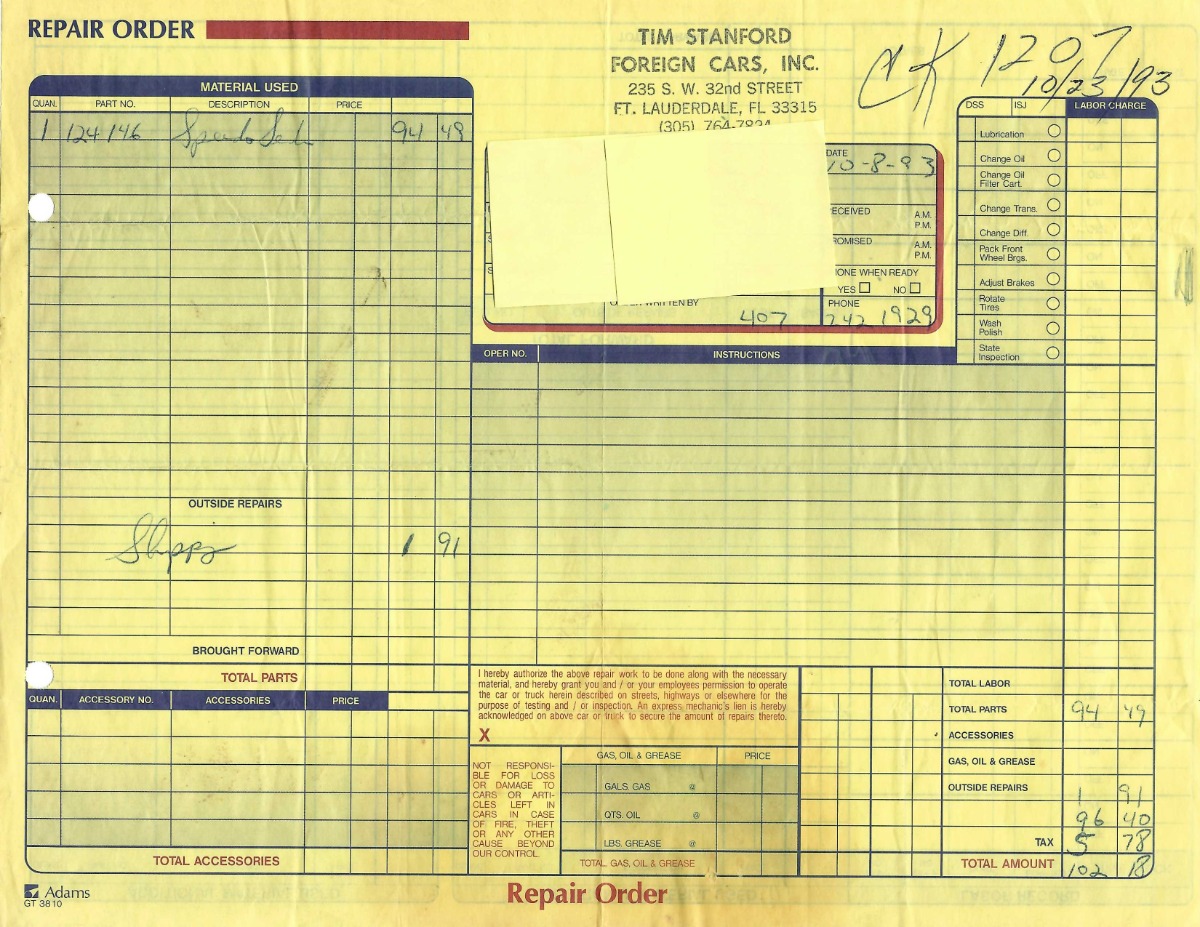 REPAIR ORDER
TIM STANFORD
FOREIGN CARS, INC.
235 S. W. 32nd STREET
FT. LAUDERDALE, FL 33315
(305) 764-7834
CK 1207
10/23/93
MATERIAL USED
QUAN. PART NO. DESCRIPTION PRICE
1 124146 Speedo 94 49
DSS ISJ LABOR CHARGE
Lubrication
Change Oil
Change Oil
Filter Cart.
Change Trans.
Change Diff.
Pack Front
Wheel Brgs.
Adjust Brakes
Rotate
Tires
Wash
Polish
State
Inspection
DATE
10-8-93
A.M.
P.M.
A.M.
P.M.
WHEN READY
YES NO
WRITTEN BY
PHONE
407 242 1929
OPER NO. INSTRUCTIONS
OUTSIDE REPAIRS
1 91
BROUGHT FORWARD
TOTAL PARTS
QUAN. ACCESSORY NO. ACCESSORIES PRICE
TOTAL ACCESSORIES
I hereby authorize the above repair work to be done along with the necessary
material, and hereby grant you and / or your employees permission to operate
the car or truck herein described on streets, highways or elsewhere for the
purpose of testing and / or inspection. An express mechanic's lien is hereby
acknowledged on above car or truck to secure the amount of repairs thereto.
X
NOT RESPONSI-
BLE FOR LOSS
OR DAMAGE TO
CARS OR ARTI-
CLES LEFT IN
CARS IN CASE
OF FIRE, THEFT
OR ANY OTHER
CAUSE BEYOND
OUR CONTROL.
GAS, OIL & GREASE PRICE
GALS. GAS @
QTS. OIL @
LBS. GREASE @
TOTAL GAS, OIL & GREASE
TOTAL LABOR
TOTAL PARTS 94 49
ACCESSORIES
GAS, OIL & GREASE
OUTSIDE REPAIRS 1 91
96 40
TAX 5 78
TOTAL AMOUNT 102 18
Adams
GT 3810
Repair Order